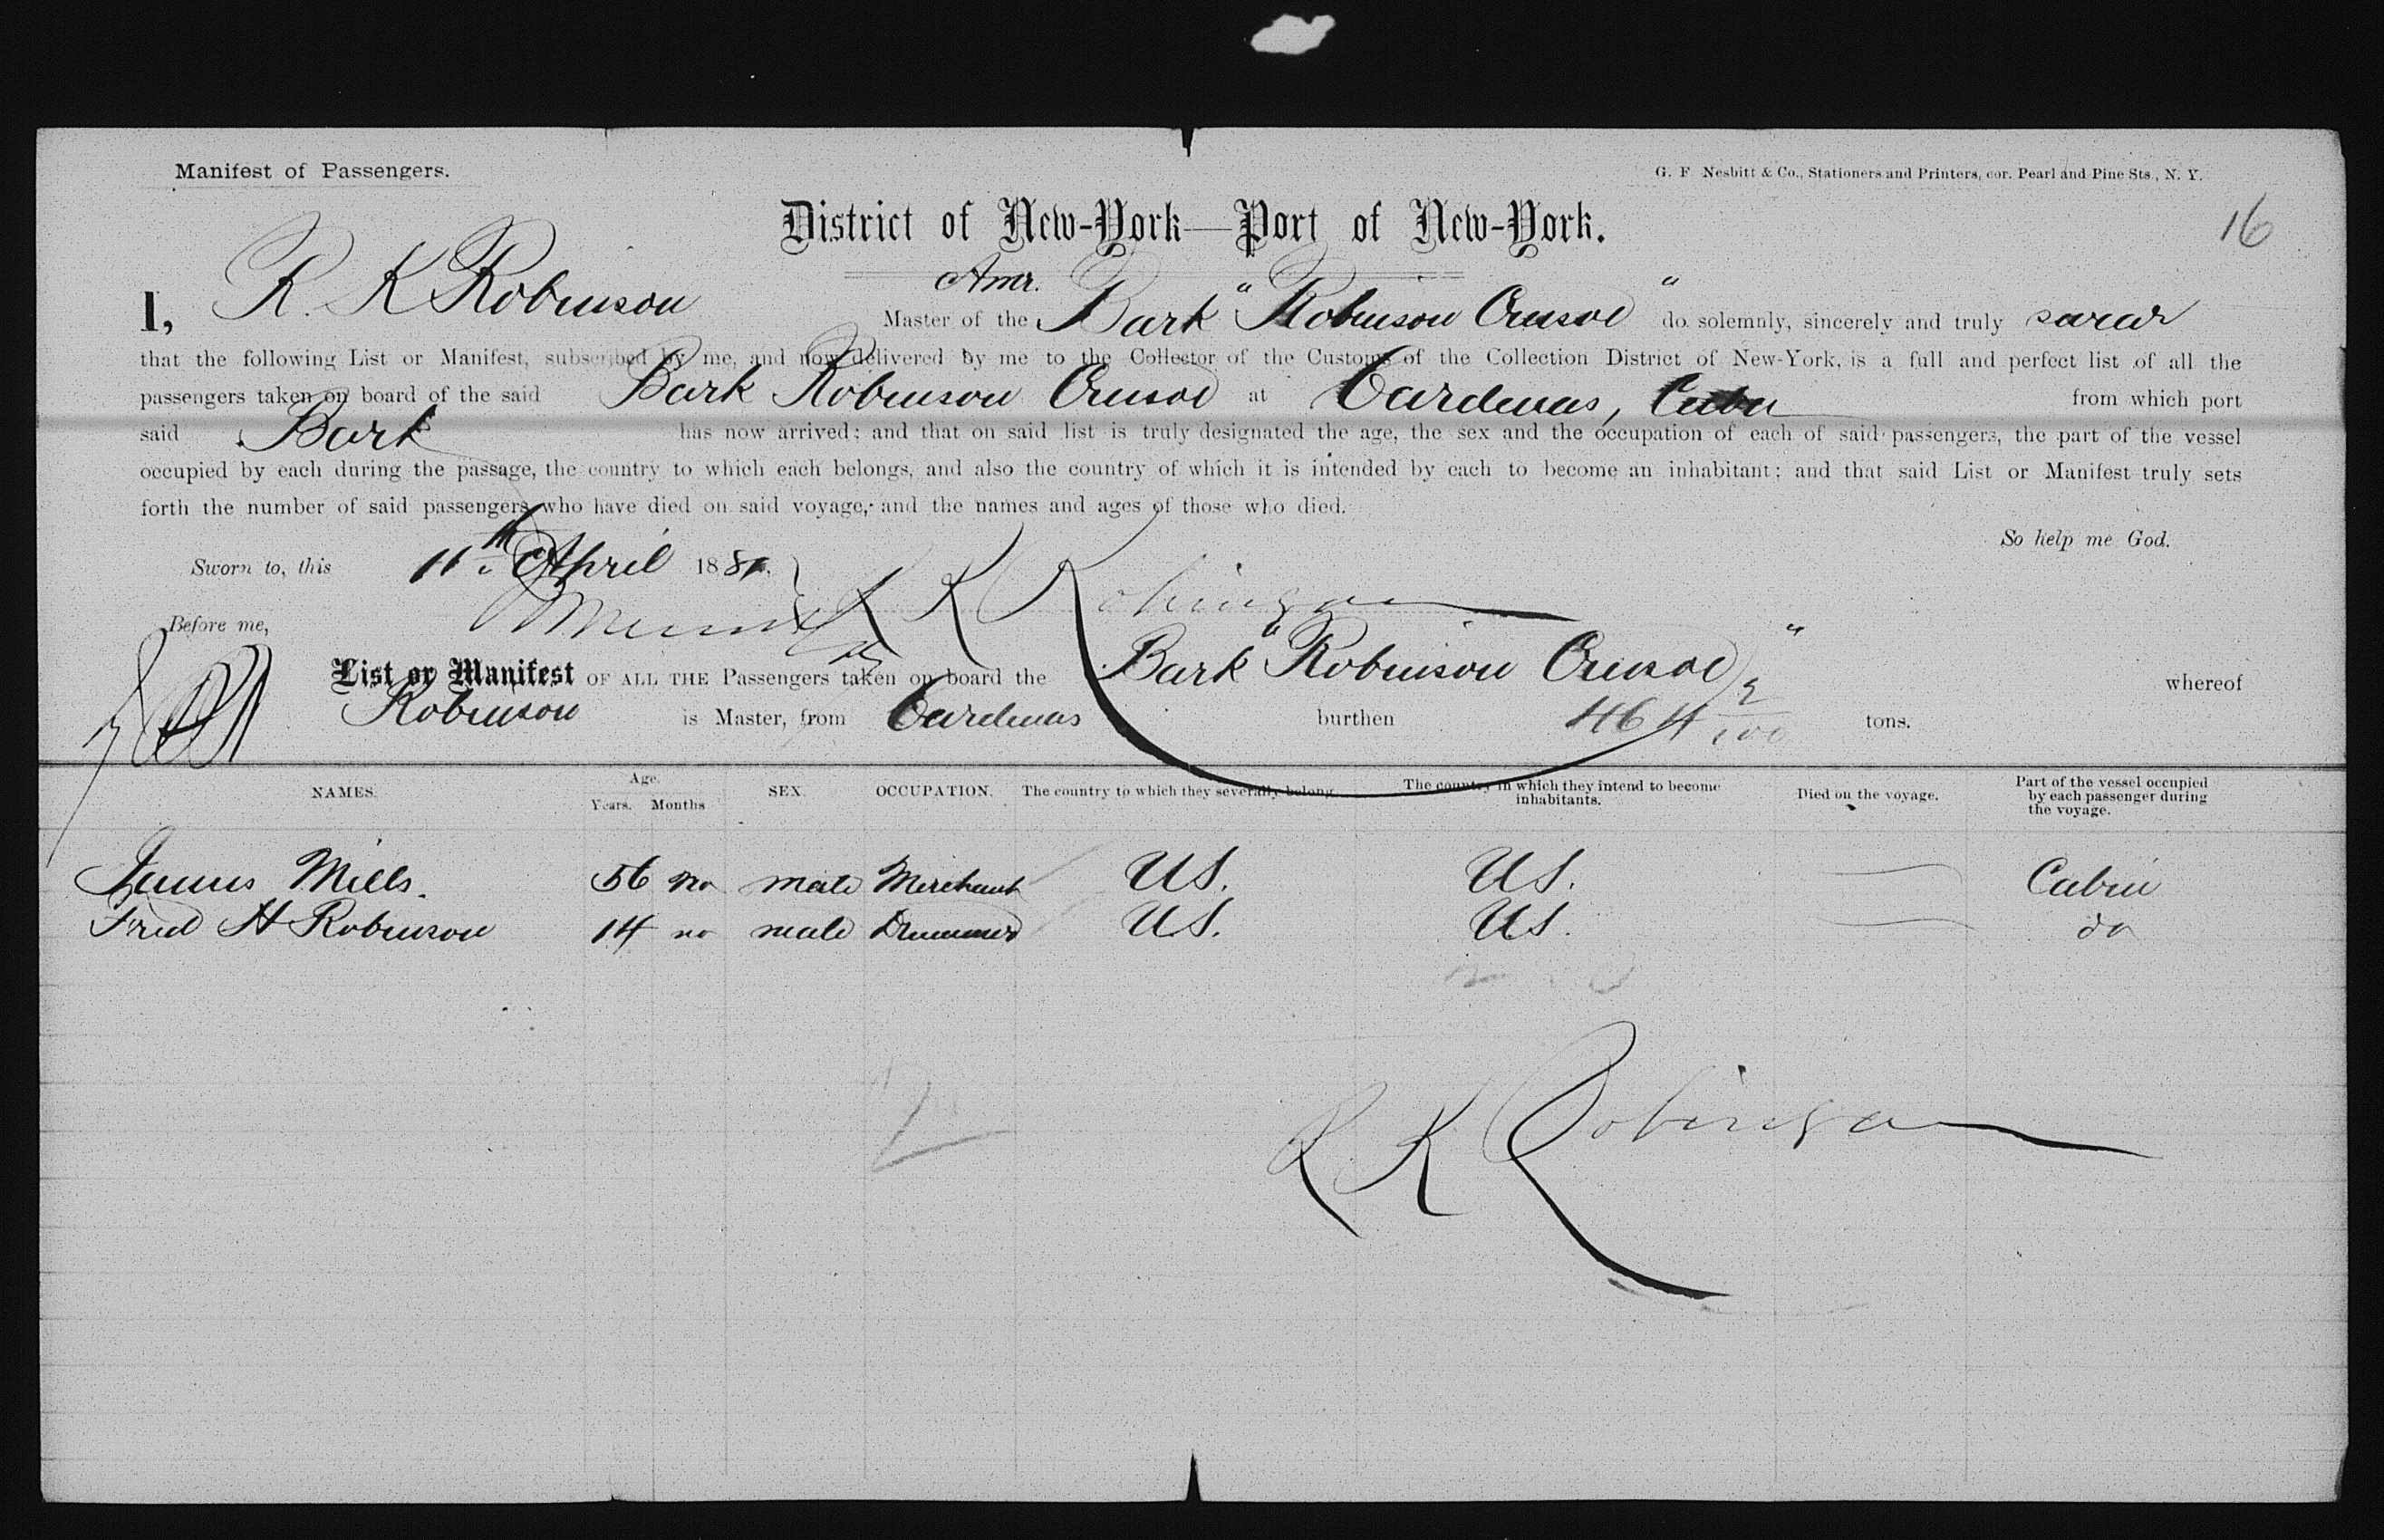 Manifest of Passengers.
G. F Nesbitt & Co., Stationers and Printers, cor. Pearl and Pine Sts., N. Y.
16
District of New-York—Port of New-York.
I, R. K Robinson Master of the Amr. Bark "Robinson Crusoe" do solemnly, sincerely and truly swear
that the following List or Manifest, subscribed by me, and now delivered by me to the Collector of the Customs of the Collection District of New-York, is a full and perfect list of all the
passengers taken on board of the said Bark Robinson Crusoe at Cardenas, Cuba from which port
said Bark has now arrived; and that on said list is truly designated the age, the sex and the occupation of each of said passengers, the part of the vessel
occupied by each during the passage, the country to which each belongs, and also the country of which it is intended by each to become an inhabitant; and that said List or Manifest truly sets
forth the number of said passengers who have died on said voyage, and the names and ages of those who died.
So help me God.
Sworn to, this 11th April 1881.
R K Robinson
Before me,
List or Manifest OF ALL THE Passengers taken on board the Bark "Robinson Crusoe" whereof
Robinson is Master, from Cardenas burthen 464 2/100 tons.
NAMES. Age. Years. Months SEX. OCCUPATION. The country to which they severally belong. The country in which they intend to become inhabitants. Died on the voyage. Part of the vessel occupied by each passenger during the voyage.
James Mills. 56 no male Merchant US. US. — Cabin
Fred H Robinson 14 no male US. US. — do
R K Robinson